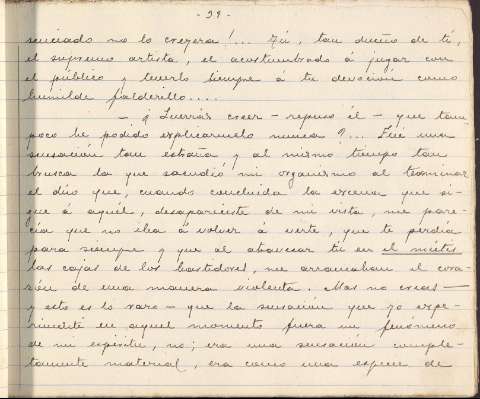 - 39 -
senciado no lo creyera!... Tú, tan dueño de tí,
el supremo artista, el acostumbrado á jugar con
el público y tenerlo siempre á tu devoción como
humilde falderillo....
— ¿Querrás creer — repuso él — que tam-
poco he podido explicármelo nunca?... Fué una
sensación tan extraña y al mismo tiempo tan
brusca la que sacudió mi organismo al terminar
el dúo que, cuando concluida la escena que si-
gue á aquél, desapareciste de mi vista, me pare-
cía que no iba á volver á verte, que te perdía
para siempre y que al atravesar tú en el mutis
las cajas de los bastidores, me arrancaban el cora-
zón de una manera violenta. Mas no creas —
y esto es lo raro — que la sensación que yo expe-
rimenté en aquel momento fuera un fenómeno
de mi espíritu, no; era una sensación comple-
tamente material, era como una especie de